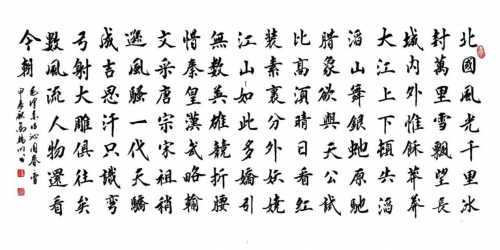 北國風光千里冰
封萬里雪飄望長
城內外惟餘莽莽
大江上下頓失滔
滔山舞銀蛇原馳
腊象欲與天公試
比高須晴日看紅
裝素裹分外妖嬈
江山如此多嬌引
無數英雄競折腰
惜秦皇漢武略輸
文采唐宗宋祖稍
遜風騷一代天驕
成吉思汗只識彎
弓射大雕俱往矣
數風流人物還看
今朝
毛澤東詞沁園春雪
甲辰秋